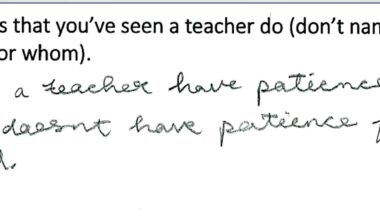 s that you've seen a teacher do (don't nam
or whom).
a teacher have patience
daesnt have patience